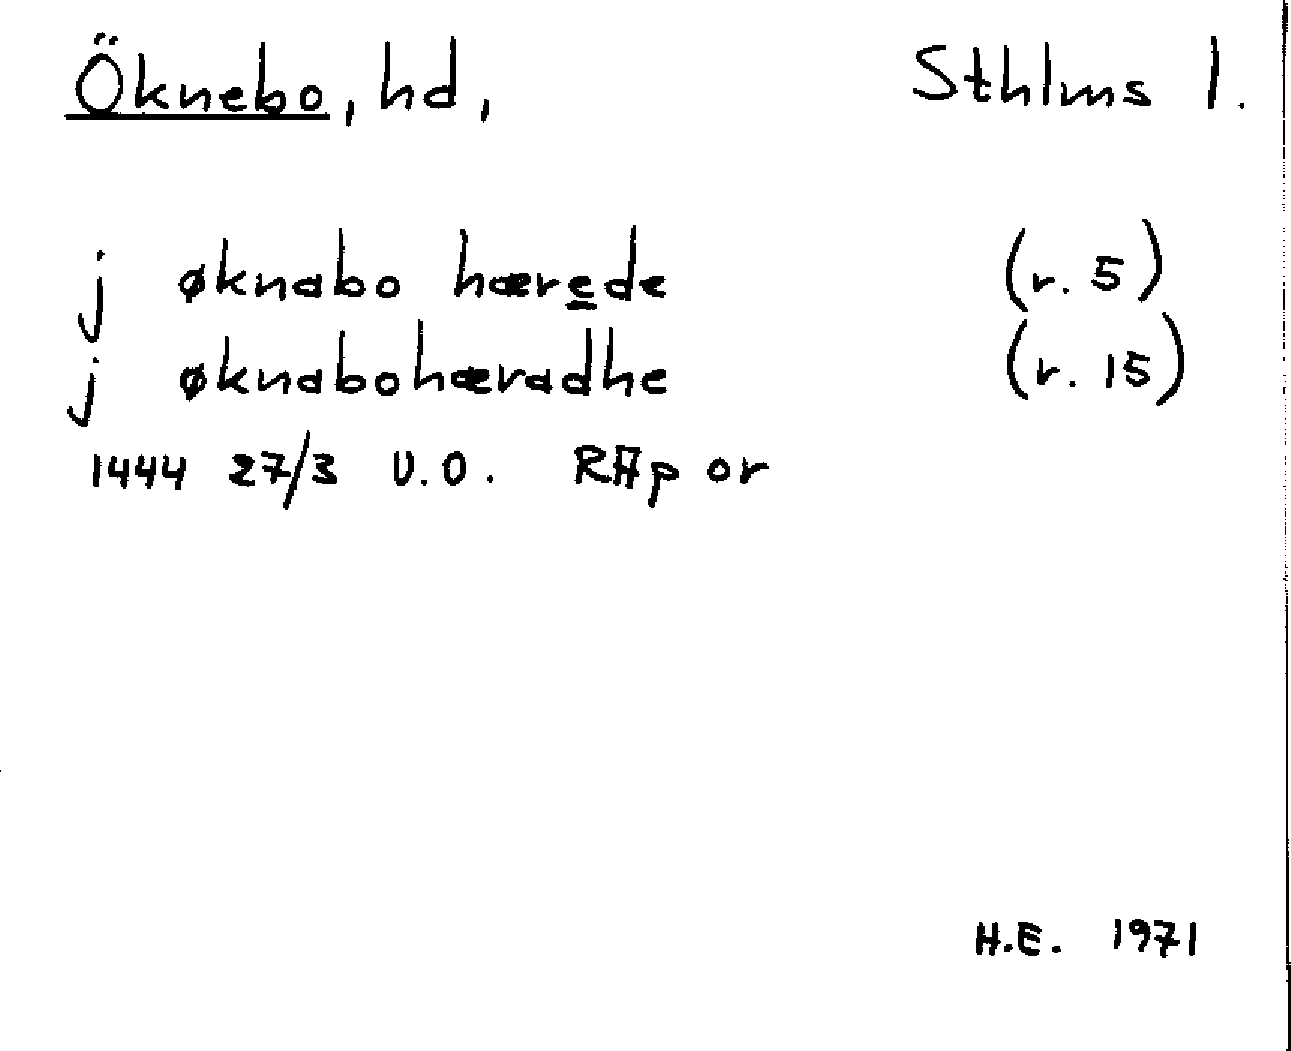 Öknebo, hd, Sthlms l.
j øknabo hærede (r. 5)
j øknabohæradhe (r. 15)
1444 27/3 U.O. RAp or
H.E. 1971